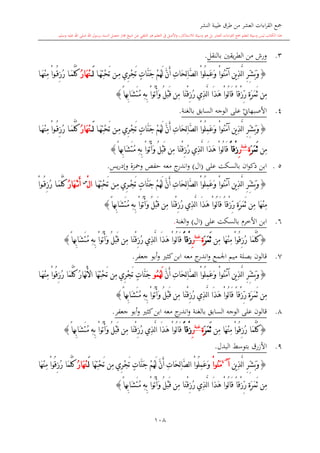 جمع القراءات العشر من طرق طيبة النشر
٣. ورش من الطريقين بالنقل.
﴿ وَبَشِّرِ الَّذِينَ آمَنُوا وَعَمِلُوا الصَّالِحَاتِ أَنَّ لَهُمْ جَنَّاتٍ تَجْرِي مِن تَحْتِهَا لَنْهَارُ كُلَّمَا رُزِقُوا مِنْهَا
مِن ثَمَرَةٍ رِّزْقًا قَالُوا هَذَا الَّذِي رُزِقْنَا مِن قَبْلُ وَأُتُوا بِهِ مُتَشَابِهًا ﴾
٤. الأصبهاني على الوجه السابق بالغنة.
﴿ وَبَشِّرِ الَّذِينَ آمَنُوا وَعَمِلُوا الصَّالِحَاتِ أَنَّ لَهُمْ جَنَّاتٍ تَجْرِي مِن تَحْتِهَا لَنْهَارُ كُلَّمَا رُزِقُوا مِنْهَا
مِن ثَمَرَةٍ رِّزْقًا قَالُوا هَذَا الَّذِي رُزِقْنَا مِن قَبْلُ وَأُتُوا بِهِ مُتَشَابِهًا ﴾
٥. ابن ذكوان بالسكت على (ال) واندرج معه حفص وحمزة وإدريس.
﴿ وَبَشِّرِ الَّذِينَ آمَنُوا وَعَمِلُوا الصَّالِحَاتِ أَنَّ لَهُمْ جَنَّاتٍ تَجْرِي مِن تَحْتِهَا الْ أَنْهَارُ كُلَّمَا رُزِقُوا
مِنْهَا مِن ثَمَرَةٍ رِّزْقًا قَالُوا هَذَا الَّذِي رُزِقْنَا مِن قَبْلُ وَأُتُوا بِهِ مُتَشَابِهًا ﴾
٦. ابن الأخرم بالسكت على (ال) والغنة.
﴿ كُلَّمَا رُزِقُوا مِنْهَا مِن ثَمَرَةٍ رِّزْقًا قَالُوا هَذَا الَّذِي رُزِقْنَا مِن قَبْلُ وَأُتُوا بِهِ مُتَشَابِهًا ﴾
٧. قالون بصلة ميم الجمع واندرج معه ابن كثير وأبو جعفر.
﴿ وَبَشِّرِ الَّذِينَ آمَنُوا وَعَمِلُوا الصَّالِحَاتِ أَنَّ لَهُمُو جَنَّاتٍ تَجْرِي مِن تَحْتِهَا الْأَنْهَارُ كُلَّمَا رُزِقُوا مِنْهَا
مِن ثَمَرَةٍ رِّزْقًا قَالُوا هَذَا الَّذِي رُزِقْنَا مِن قَبْلُ وَأُتُوا بِهِ مُتَشَابِهًا ﴾
٨. قالون على الوجه السابق بالغنة واندرج معه ابن كثير وأبو جعفر.
﴿ كُلَّمَا رُزِقُوا مِنْهَا مِن ثَمَرَةٍ رِّزْقًا قَالُوا هَذَا الَّذِي رُزِقْنَا مِن قَبْلُ وَأُتُوا بِهِ مُتَشَابِهًا ﴾
٩. الأزرق بتوسط البدل.
﴿ وَبَشِّرِ الَّذِينَ آمَنُوا وَعَمِلُوا الصَّالِحَاتِ أَنَّ لَهُمْ جَنَّاتٍ تَجْرِي مِن تَحْتِهَا لَنْهَارُ كُلَّمَا رُزِقُوا مِنْهَا
مِن ثَمَرَةٍ رِّزْقًا قَالُوا هَذَا الَّذِي رُزِقْنَا مِن قَبْلُ وَأُتُوا بِهِ مُتَشَابِهًا ﴾
١٠٨